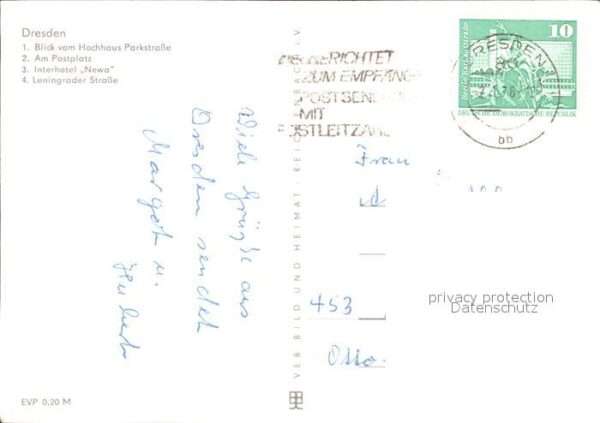 Dresden
1. Blick vom Hochhaus Parkstraße
2. Am Postplatz
3. Interhotel „Newa"
4. Leningrader Straße
Viele Grüße aus
Dresden sendet
Margot u.
EVP 0,20 M
VEB BILD UND HEIMAT · REICHENBACH I. V.
ZUM EMPFANG
POSTSEND
MIT
OSTLEITZAHL
DRESDEN
bb
10
DEUTSCHE DEMOKRATISCHE REPUBLIK
Frau
453
Otto.
privacy protection
Datenschutz